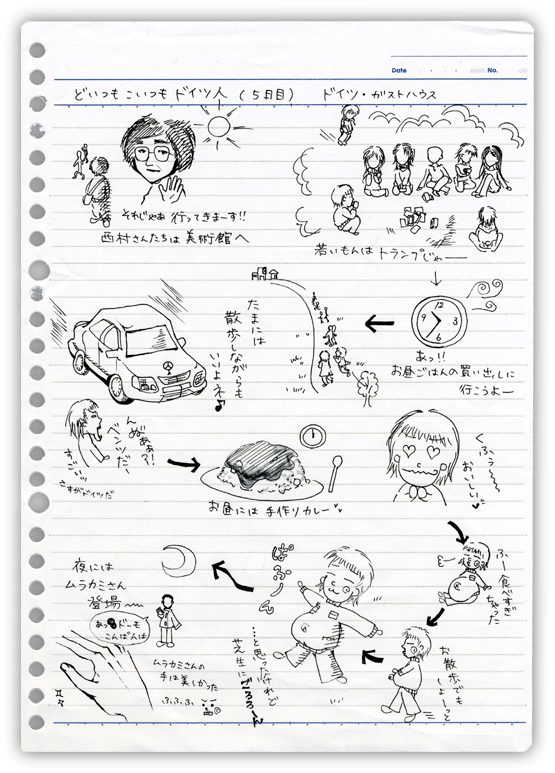 Date No.
どいつもこいつもドイツ人（5日目） ドイツ・ガストハウス
それじゃあ行ってきまーす!!
西村さんたちは美術館へ
若いもんはトランプじゃー
12
9 3
6
あっ!!
お昼ごはんの買い出しに
行こうよー
たまには
散歩しながらも
いいよネ♪
んぬぁぁ?!
ベンツだ、
すごいッ
さすがドイツだ
お昼には手作りカレー♥♥
くふぅ〜〜
おいしい♥
ふー食べすぎ
ちゃった
お散歩でも
しよーっと
ぱふーん
…と思ったけれど
芝生にごろろーん
夜には
ムラカミさん
登場〜〜
あっドーモ
こんばんは
ムラカミさんの
手は美しかった
ふふふ